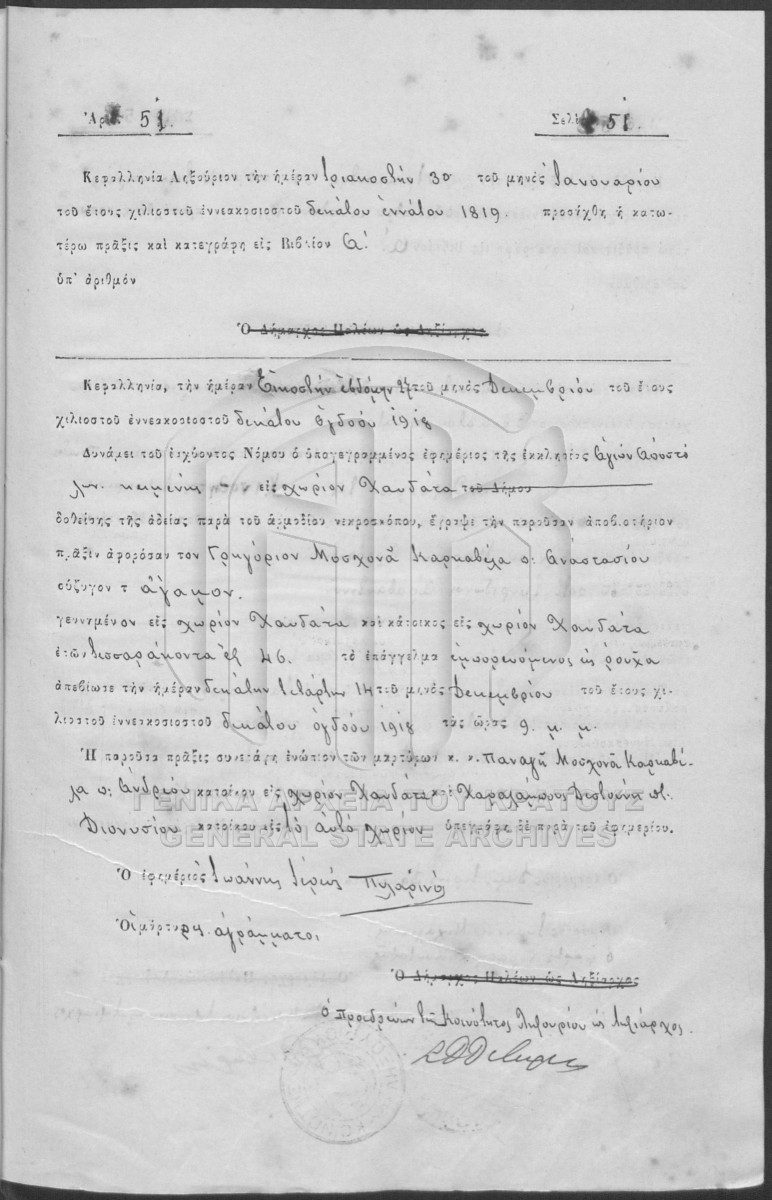 Ἀρι 51.
Σελὶς 51.
Κεφαλληνία Ληξούριον τὴν ἡμέραν τριακοστὴν 30 τοῦ μηνὸς Ἰανουαρίου
τοῦ ἔτους χιλιοστοῦ ἐννεακοσιοστοῦ δεκάτου ἐννάτου 1819 προσήχθη ἡ κατω-
τέρω πρᾶξις καὶ κατεγράφη εἰς Βιβλίον Α΄.
ὑπ' ἀριθμόν
Ὁ Δήμαρχος Παλέων ὡς Ληξίαρχος
Κεφαλληνία, τὴν ἡμέραν Εἰκοστὴν ἑβδόμην 27 τοῦ μηνὸς Δεκεμβρίου τοῦ ἔτους
χιλιοστοῦ ἐννεακοσιοστοῦ δεκάτου ὀγδόου 1918
Δυνάμει τοῦ ἰσχύοντος Νόμου ὁ ὑπογεγραμμένος ἐφημέριος τῆς ἐκκλησίας Ἁγίων Ἀποστό
λων κειμένης εἰς χωρίον Χαυδάτα τοῦ Δήμου
δοθείσης τῆς ἀδείας παρὰ τοῦ ἁρμοδίου νεκροσκόπου, ἔγραψε τὴν παροῦσαν ἀποβιωτήριον
πρᾶξιν ἀφορῶσαν τον Γρηγόριον Μοσχονᾶ Καρκαβέλα π: Ἀναστασίου
σύζυγον τ ἄγαμον.
γεννημένον εἰς χωρίον Χαυδάτα καὶ κάτοικος εἰς χωρίον Χαυδάτα
ἐτῶν τεσσαράκοντα ἓξ 46. τὸ ἐπάγγελμα ἐμπορευόμενος εἰς ροῦχα
ἀπεβίωσε τὴν ἡμέραν δεκάτην τετάρτην 14 τοῦ μηνὸς Δεκεμβρίου τοῦ ἔτους χι-
λιοστοῦ ἐννεακοσιοστοῦ δεκάτου ὀγδόου 1918 τὰς ὥρας 9. μ. μ.
Ἡ παροῦσα πρᾶξις συνετάγη ἐνώπιον τῶν μαρτύρων κ. κ. Παναγῆ Μοσχονᾶ Καρκαβέ-
λα π: Ἀνδρέου κατοίκου εἰς χωρίον Χαυδάτα καὶ Χαραλάμπους Δεστούνη π:
Διονυσίου κατοίκου εἰς τὸ αὐτὸ χωρίον ὑπεγράφη δὲ παρὰ τοῦ ἐφημερίου.
ΓΕΝΙΚΑ ΑΡΧΕΙΑ ΤΟΥ ΚΡΑΤΟΥΣ
GENERAL STATE ARCHIVES
Ὁ ἐφημέριὸς Ἰωάννης ἱερεὺς Πυλαρινὸς
Οἱ μάρτυρες ἀγράμματοι
Ὁ Δήμαρχος Παλέων ὡς Ληξίαρχος
ὁ προεδρεύων τῆς Κοινότητος Ληξουρίου ὡς Ληξίαρχος